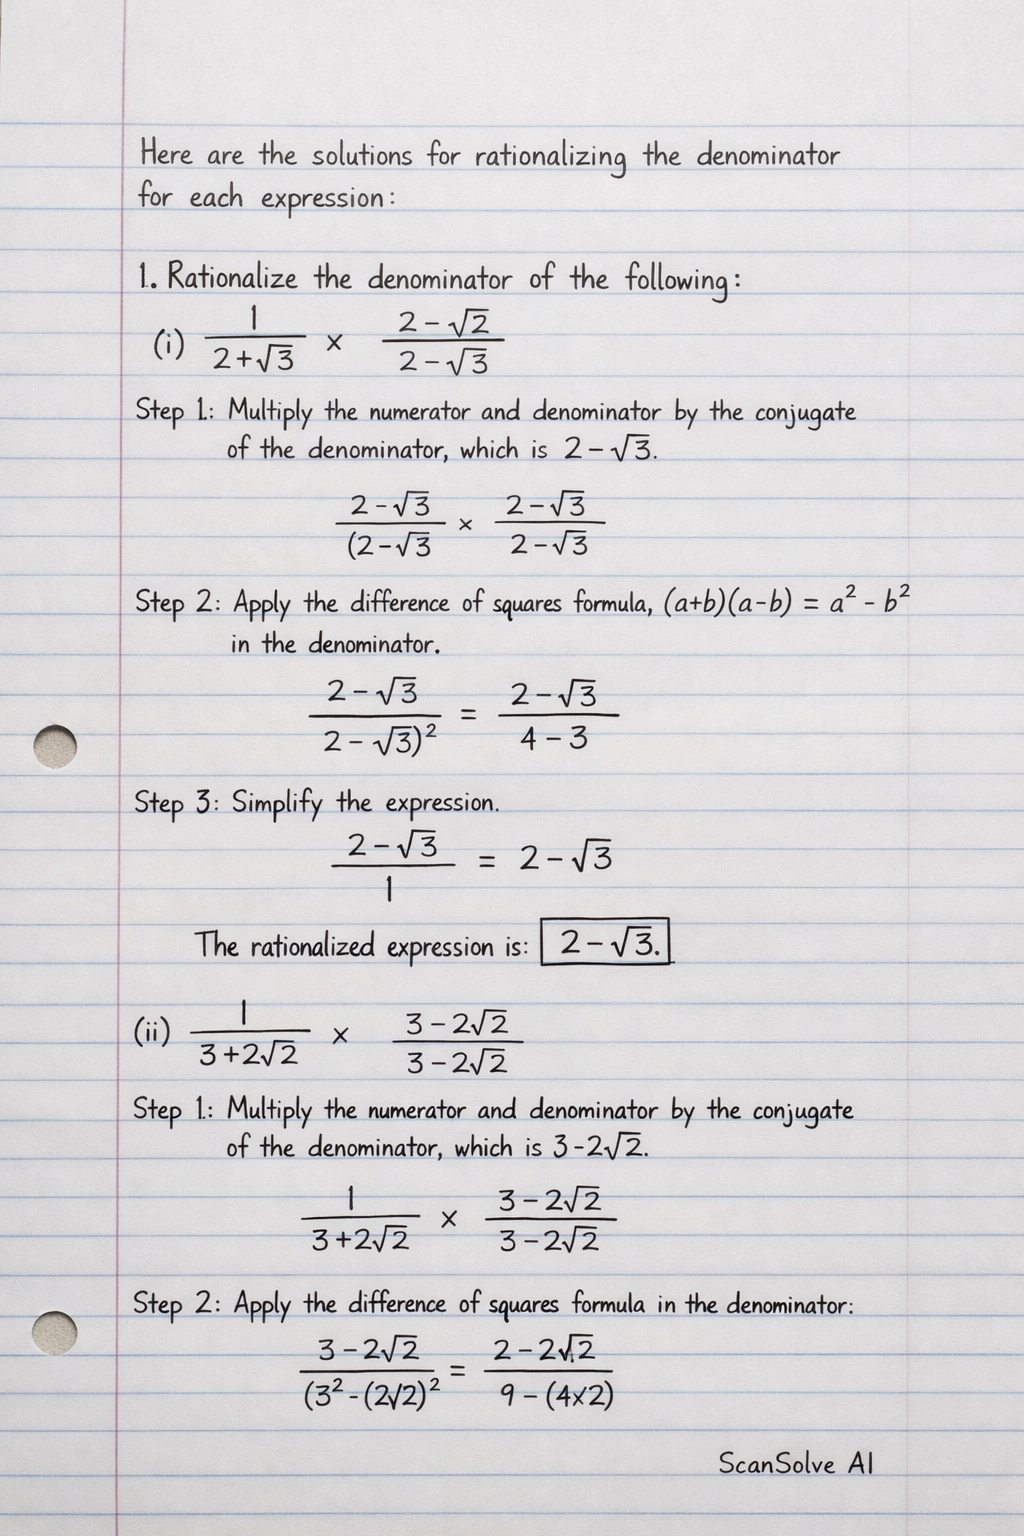 Here are the solutions for rationalizing the denominator
for each expression:
1. Rationalize the denominator of the following:
(i) 1/(2+√3) × (2-√2)/(2-√3)
Step 1.: Multiply the numerator and denominator by the conjugate
of the denominator, which is 2-√3.
(2-√3)/((2-√3) × (2-√3)/(2-√3)
Step 2: Apply the difference of squares formula, (a+b)(a-b) = a² - b²
in the denominator.
(2-√3)/(2-√3)² = (2-√3)/(4-3)
Step 3: Simplify the expression.
(2-√3)/1 = 2-√3
The rationalized expression is: 2-√3.
(ii) 1/(3+2√2) × (3-2√2)/(3-2√2)
Step 1.: Multiply the numerator and denominator by the conjugate
of the denominator, which is 3-2√2.
1/(3+2√2) × (3-2√2)/(3-2√2)
Step 2: Apply the difference of squares formula in the denominator:
(3-2√2)/((3²-(2√2)²) = (2-2√2)/(9-(4×2))
ScanSolve AI